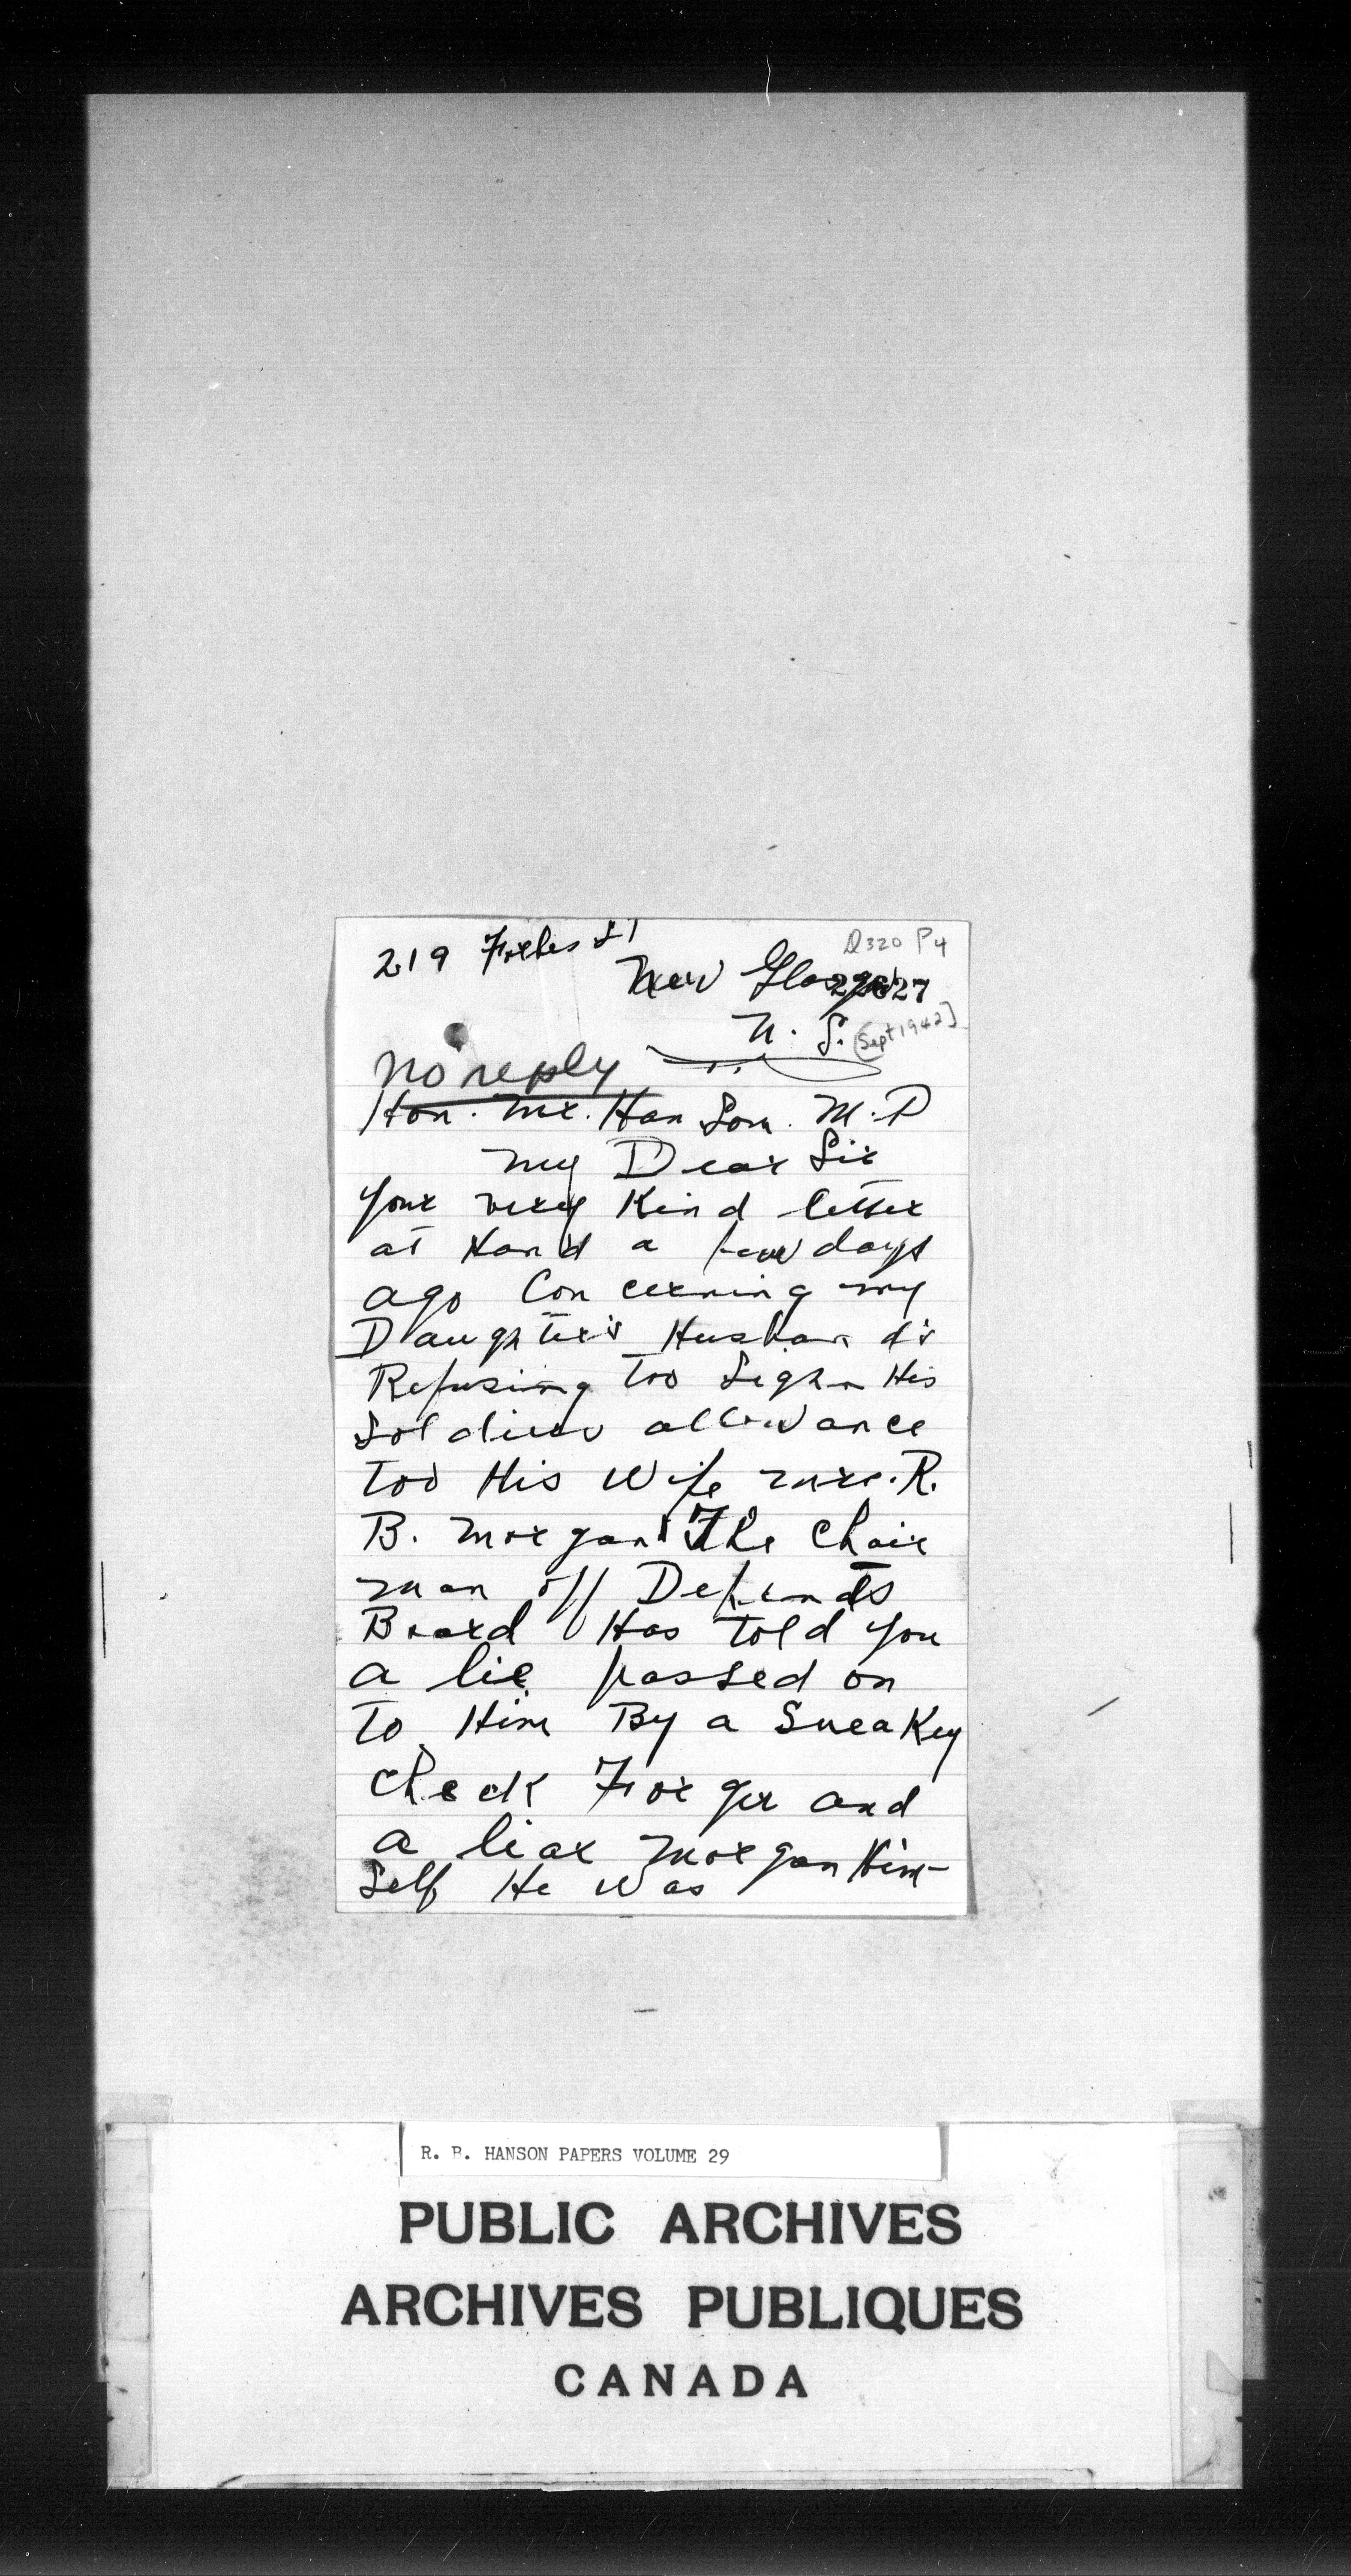 219 Forbes St
D320 P4
New Glasgow
22627
N. S.
[Sept 1942]
no reply
Hon. Mr. Han Son. M.P
My Dear Sir
your very Kind letter
at Hand a few days
ago Con cerning my
Daughter's Husban d's
Refusing Too Sighn His
Soldiers allowance
Too His Wife mrs. R.
B. Morgan The Chair
man off Depends
Board Has Told you
a lie passed on
To Him By a SneaKey
Check Forger and
a liar Morgan Him-
Self He Was
R. B. HANSON PAPERS VOLUME 29
PUBLIC ARCHIVES
ARCHIVES PUBLIQUES
CANADA